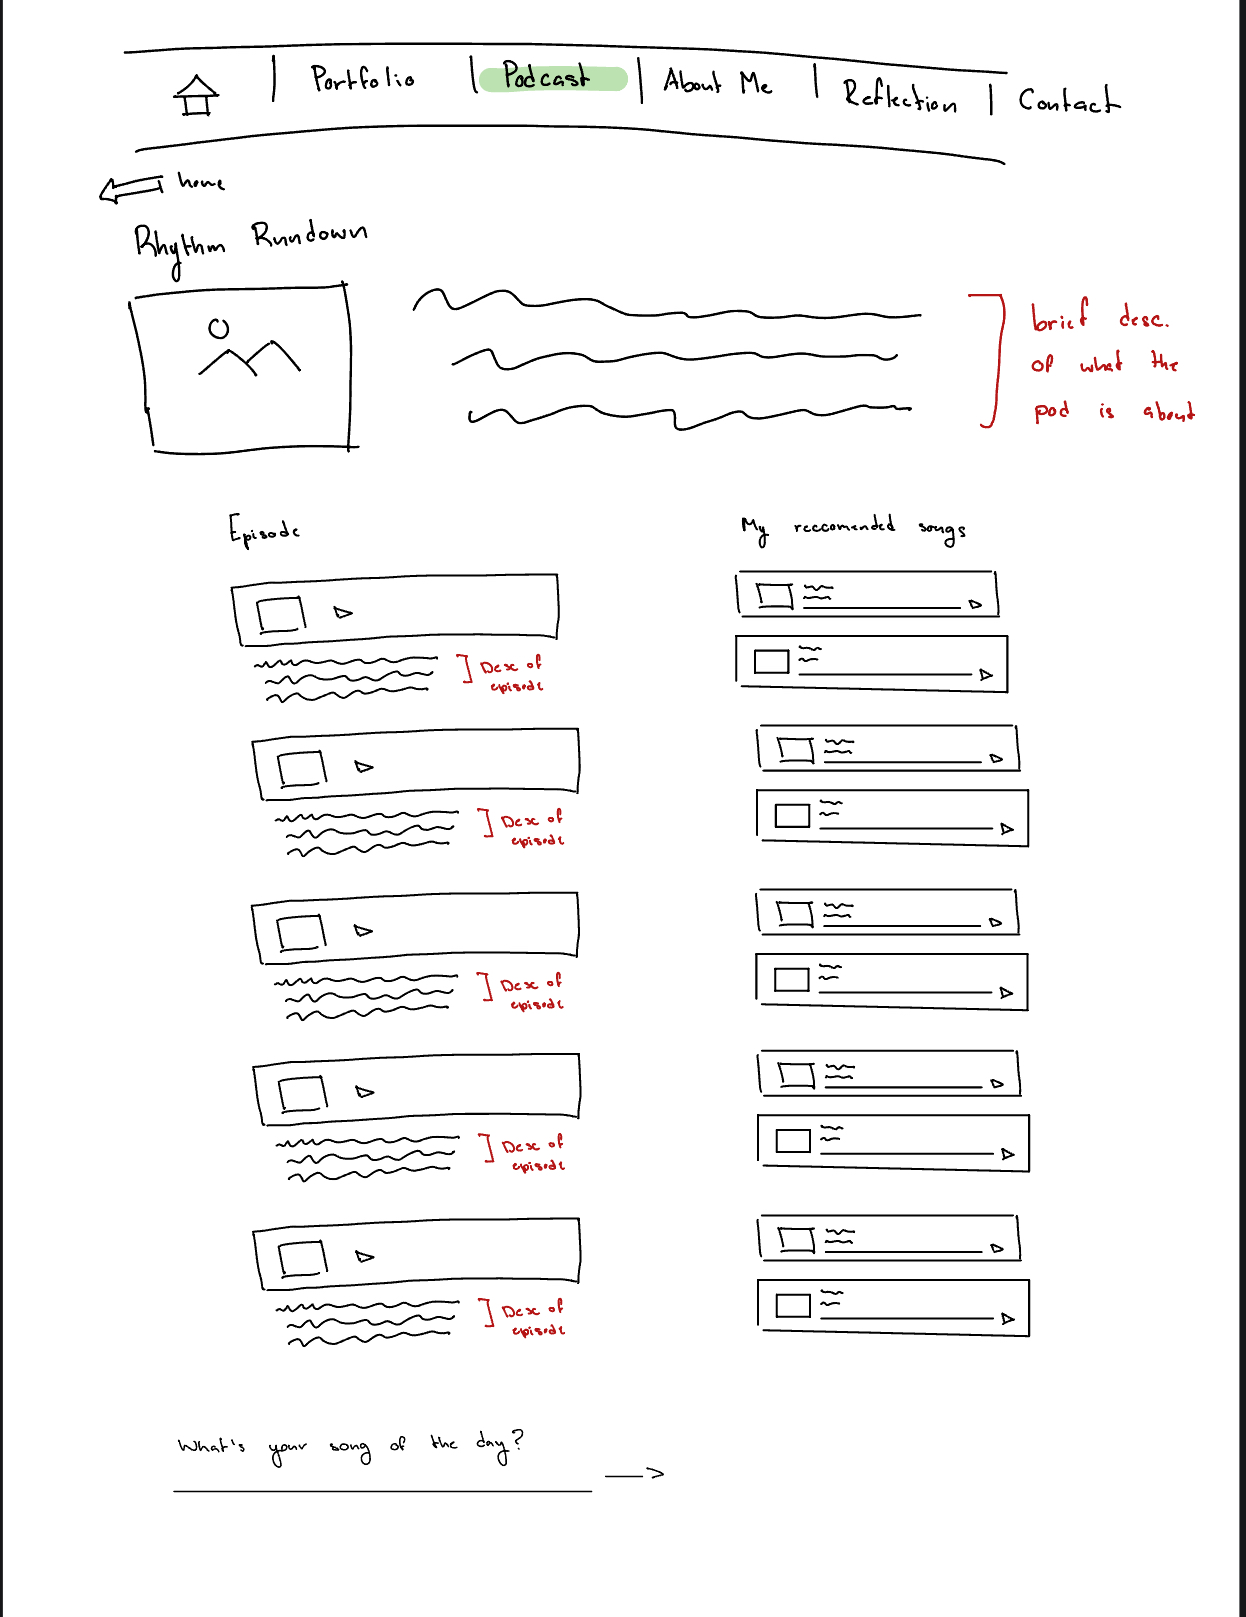 Portfolio | Podcast | About Me | Reflection | Contact
home
Rhythm Rundown
brief desc.
of what the
pod is about
Episode
My reccomended songs
Desc of
episode
Desc of
episode
Desc of
episode
Desc of
episode
Desc of
episode
What's your song of the day?